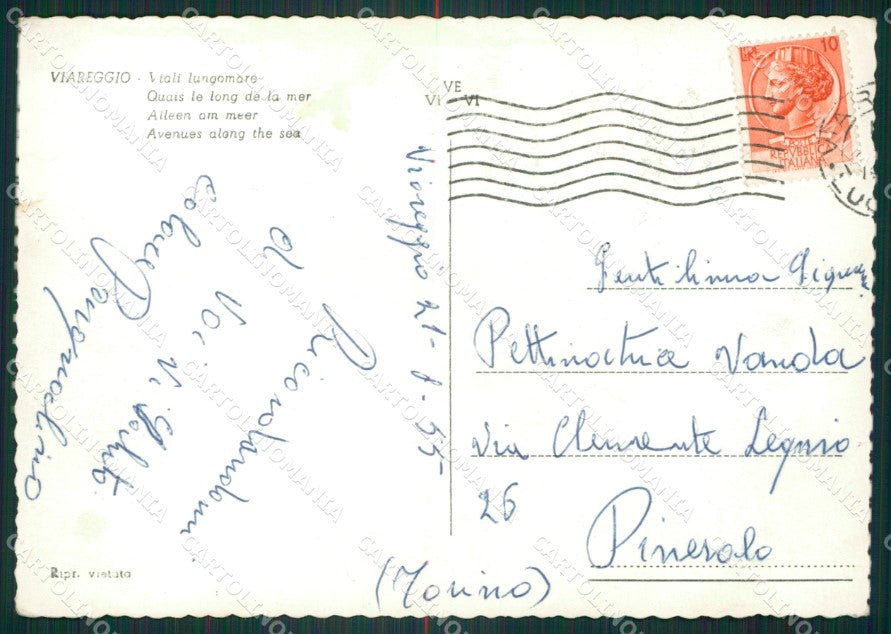 VIAREGGIO - Viali lungomare
Quais le long de la mer
Alleen am meer
Avenues along the sea
VE
VI VI
LIRE 10
POSTE
REPVBBLICA
ITALIANA
Viareggio 21-8-55
Ricordandomi
di Voi Vi Saluto
Gentilima
Pettinatrice Vanda
Via Clemente Legnio
26
Pinerolo
(Torino)
Ripr. vietata
CARTOLINOMANIA